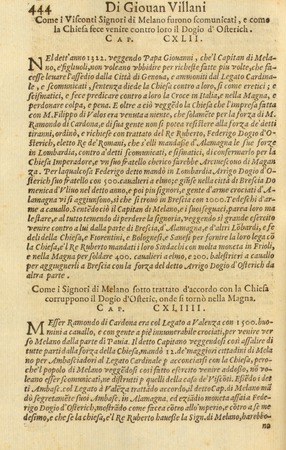 444 Di Giovan Villani
Come i Visconti Signori di Melano furono scomunicati, e como
la Chiesa fece venire contro loro il Dogio d'Osterich.
CAP. CXLII.
NEl dett'anno 1322. veggendo Papa Giovanni, che'l Capitan di Mela-
no, e figliuoli, non voleano ubbidire per richeste fatte piu volte, che si
lesse lenare l'assedio dalla Città di Genova, e ammoniti dal Legato Cardina-
le, e scomunicati, sentenza diede la Chiesa contro a loro, sì come eretici; e
scismatici, e fece predicare contro a loro la Croce in Italia, e nella Magna, e
perdonare colpa, e pena. E oltre a ciò veggēdo la Chiesa che l'impresa fatta
con M. Filippo di Valos era venuta a niente, che solamēte per la forza di M.
Ramondo di Cardena, e di sua gente non si potea resistere alla forza de' detti
tiranni, ordinò, e richese con trattato del Re Ruberto, Federigo Dogio d'O-
sterich, eletto Re de' Romani, che s'elli mandasse d'Alamagna le sue forze
in Lombardia, contro a' detti scomunicati, e scismatici, di confermarlo per la
Chiesa Imperadore, e vn suo fratello cherico farebbe Arcivescovo di Magan
za. Per la qual cosa Federigo detto mandò in Lombardia, Arrigo Dogio d'O-
sterich suo fratello con 500. cavalieri a elmo; e giūse nella città di Brescia Do
menica d'Ulivo nel detto anno, e poi piu signori, e gente d'arme crociati d'A-
lamagna vi s'aggiunsono, sì che si trovò in Brescia con 2000. Tedeschi d'ar-
me a cavallo. Sentēdo ciò il Capitan di Melano, e i suoi seguaci, parea loro ma
le stare, e al tutto temendo di perdere la signoria, veggendo sì grande esercito
venire contro a lui dalla parte di Brescia, d'Alamagna, e d'altri Lōbardi, e fe-
deli della Chiesa, e Fiorentini, e Bolognesi, e Sanesi per fornire la loro lega cō
la Chiesa, e'l Re Ruberto mandati loro Sindachi con molta moneta in Frioli,
e nella Magna per soldare 400. cavalieri a elmo, e 200. balestrieri a cavallo
per aggiugnerli a Brescia con la forza del detto Arrigo Dogio d'Osterich da
altra parte.
Come i Signori di Melano sotto trattato d'accordo con la Chiesa
corruppono il Dogio d'Osteric, onde si tornò nella Magna.
CAP. CXLIII.
MEsser Ramondo di Cardena era col Legato a Valenza con 1500. huo-
mini a cavallo, e con gente a piè innumerabile crociati, per venire ver
so Melano dalla parte di Pavia. Il detto Capitano veggendosi così assalire di
tutte parti dalla forza della Chiesa, mandò 12. de' maggiori cittadini di Mela
no per Ambasciadori al Legato Cardinale per acconciarsi con la Chiesa, pero-
che'l popolo di Melano veggēdosi così fatto esercito venire addosso, nō vo-
leano esser scomunicati, ne distrutti per quelli della casa de' Viscōti. Essēdo i det
ti Ambasc. col Legato à Valēza trattādo accordo, il detto Cap. di Melano mā
dò segretamēte suoi Ambasc. in Alamagna, ed eziādio moneta assai a Fede-
rigo Dogio d'Osterich, mostrādo come facea cōtro all'imperio, e cōtro a se me
desimo, e che se la Chiesa, e'l Re Ruberto havesse la Sign. di Melano, harebbo-
no